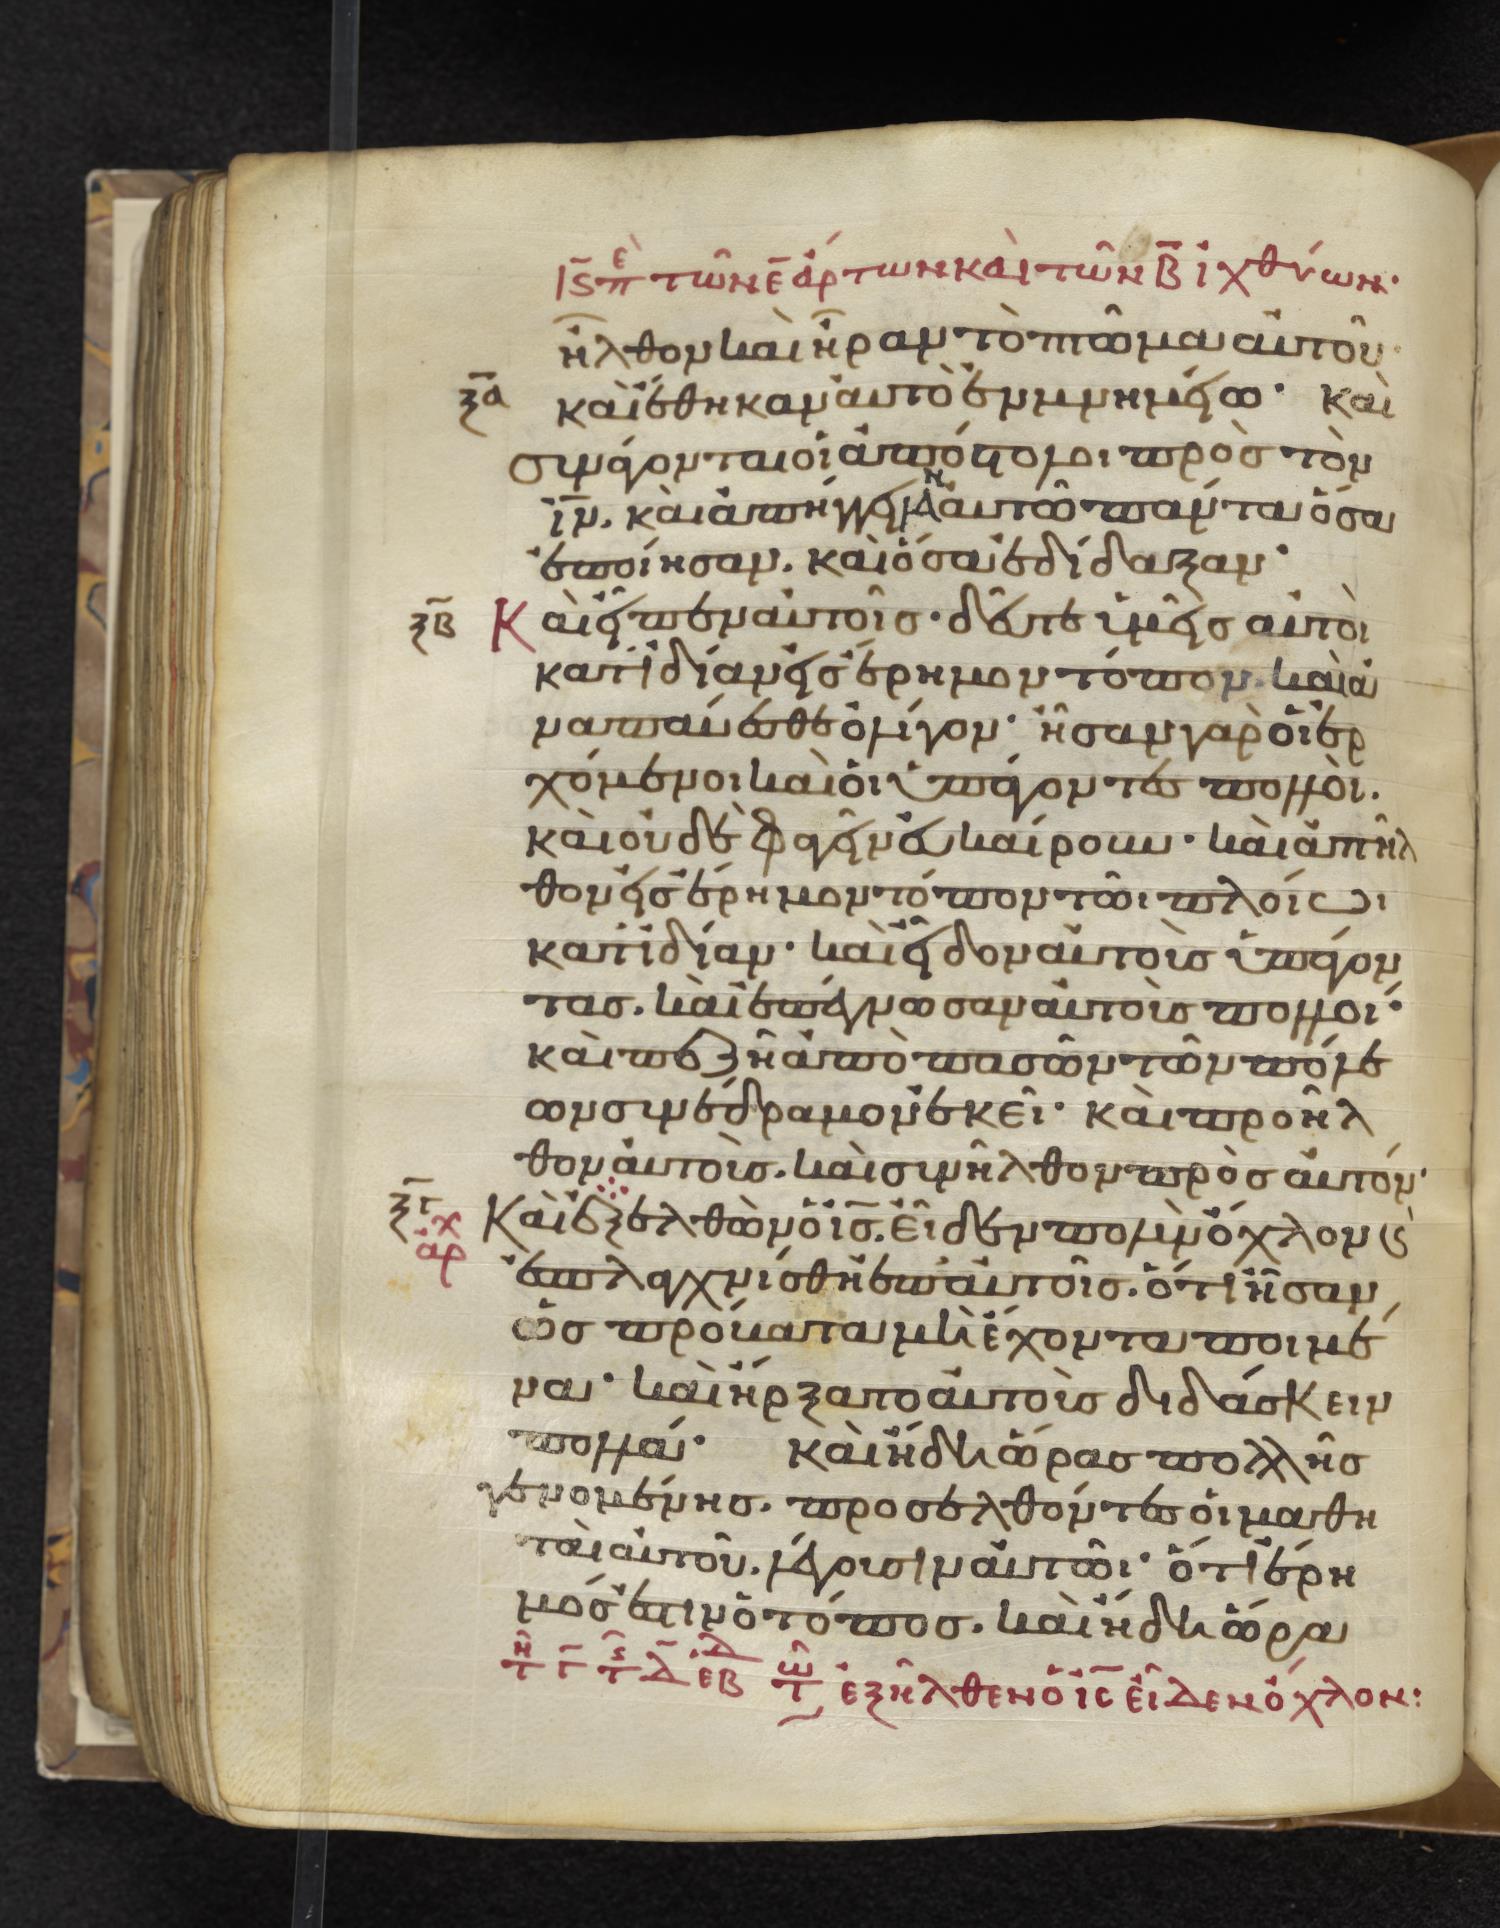 ΙϚ πε τῶν ε̄ ἄρτων καὶ τῶν β̄ ἰχθύων·
ἦλθον καὶ ἦραν τὸ πτῶμα αὐτοῦ·
ξα καὶ ἔθηκαν αὐτὸ ἐν μνημείω· καὶ
συνάγονται οἱ ἀπόστολοι πρὸς τὸν
ιν̄. καὶ ἀπήγγειλαν αὐτῶ πάντα ὅσα
ἐποίησαν. καὶ ὅσα ἐδίδαξαν·
ξβ Καὶ εἶπεν αὐτοῖς· δεῦτε ὑμεῖς αὐτοὶ
κατιδίαν εἰς ἔρημον τόπον. καὶ ἀ
ναπαύεσθε ὀλίγον· ἦσαν γὰρ οἱ ἐρ
χόμενοι καὶ οἱ ὑπάγοντες πολλοὶ.
καὶ οὐδὲ φαγεῖν εὐκαίρουν· καὶ ἀπῆλ
θον εἰς ἔρημον τόπον τῶι πλοίωι
κατιδίαν· καὶ εἶδον αὐτοὺς ὑπάγον
τας. καὶ ἐπέγνωσαν αὐτοὺς πολλοί·
καὶ πεζῆ ἀπὸ πασῶν τῶν πόλε
ων συνέδραμον ἐκεῖ· καὶ προῆλ
θον αὐτοὺς. καὶ συνῆλθον πρὸς αὐτόν·
ξγ Καὶ ἐξελθὼν ὁ ις̄. εἶδεν πολὺν ὄχλον ϗ
χ
ἀρ
ἐσπλαγχνίσθη ἐπ' αὐτοῖς. ὅτι ἦσαν
ὡς πρόβατα μὴ ἔχοντα ποιμέ
να· καὶ ἤρξατο αὐτοὺς διδάσκειν
πολλά· καὶ ἤδη ὥρας πολλῆς
γενομένης. προσελθόντες οἱ μαθη
ταὶ αὐτοῦ. λέγουσιν αὐτῶι· ὅτι ἔρη
μός ἐστιν ὁ τόπος. καὶ ἤδη ὥρα
τη γ̄ τς δ̄ ἑβδ τω ἐξῆλθεν ὁ ις εἶδεν ὄχλον: